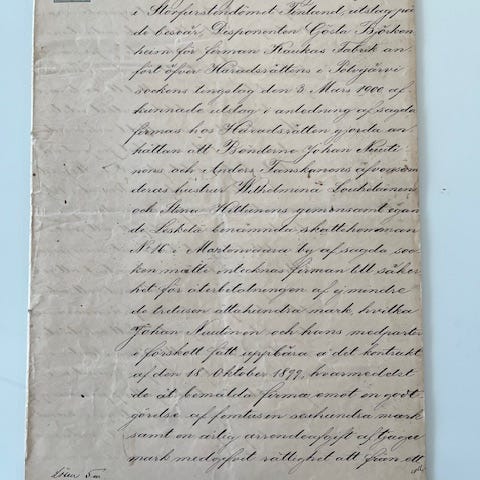 i Storfurstendömet Finland, utslag på
de besvär, Disponenten Gösta Björken
heim för firman Ruukas Fabrik an
fört öfver Häradsrättens i Tohmajärvi
sockens tingslag den 3 Mars 1900 af
kunnade utslag i anledning af sagda
firmas hos Häradsrätten gjorda an
hållan att Bönderne Johan Nuuti
nens och Anders Tanskanens äfvensom
deras hustrur Wilhelmina Loukolainens
och Stina Hiltunens gemensamt ägan
de Leskelä benämnda skattehemanan
№ 16 i Martonvaara by af sagda soc
ken måtte intecknas firman till säker
het för återbetalningen af ej mindre
de tretusen åttahundra mark, hvilka
Johan Nuutinen och hans medparter
i förskott fått uppbära å det kontrakt
af den 18 Oktober 1899, hvarmedelst
de åt bemälda firma emot en godt
görelse af femtusen sexhundra mark
samt en årlig arrendeafgift af tjugo
mark medgifvit rättighet att från ett
Lösen 5 m